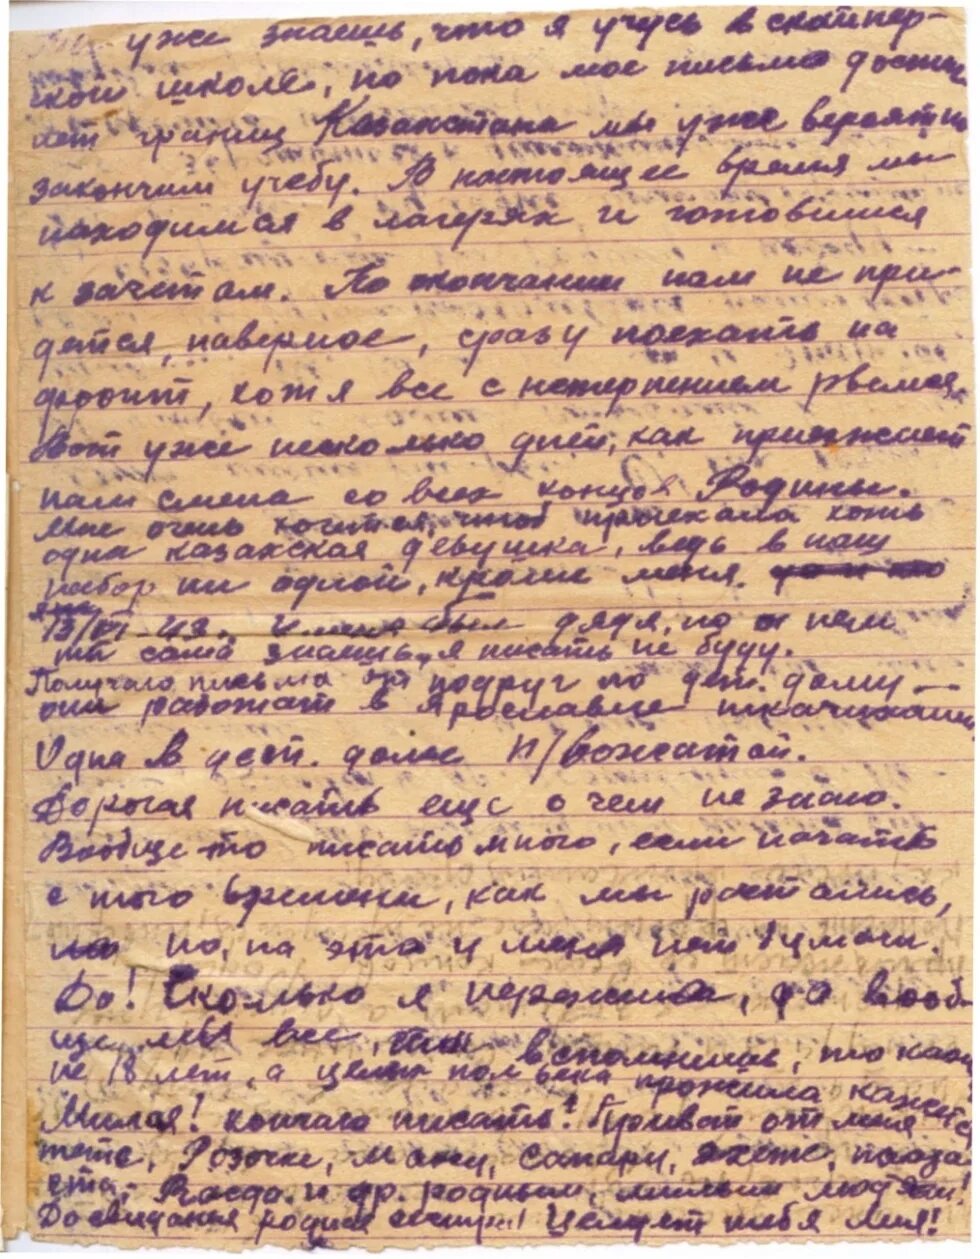 уже знаешь, что я учусь в снайпер-
ской школе, но пока мое письмо достиг
нет границ Казахстана мы уже вероятно
закончим учебу. В настоящее время мы
находимся в лагерях и готовимся
к зачетам. По окончании нам не при-
дется, наверное, сразу поехать на
фронт, хотя все с нетерпением рвемся.
Вот уже несколько дней, как приезжает
нам смена со всех концов Родины.
Мне очень хочется, чтоб приехала хоть
одна казахская девушка, ведь в наш
набор ни одной, кроме меня.
У меня был дядя, но о нем
ты сама знаешь, я писать не буду.
Получаю письма от подруг по дет. дому
они работают в Ярославле ткачихами
Одна в дет. доме п/вожатой.
Дорогая писать еще о чем не знаю.
Вообще-то писать много, если начать
с того времени, как мы растались,
но, на это у меня нет бумаги.
Да! Сколько я пережила, да вооб
ще мы все, вспомнишь, то каж
не 18 лет, а целых полвека прожила кажется
Милая! кончаю писать! Привет от меня
тете, Розочке, Сапару,
и др. родным, милым людям!
До свиданья родная сестра! Целует тебя Лия!